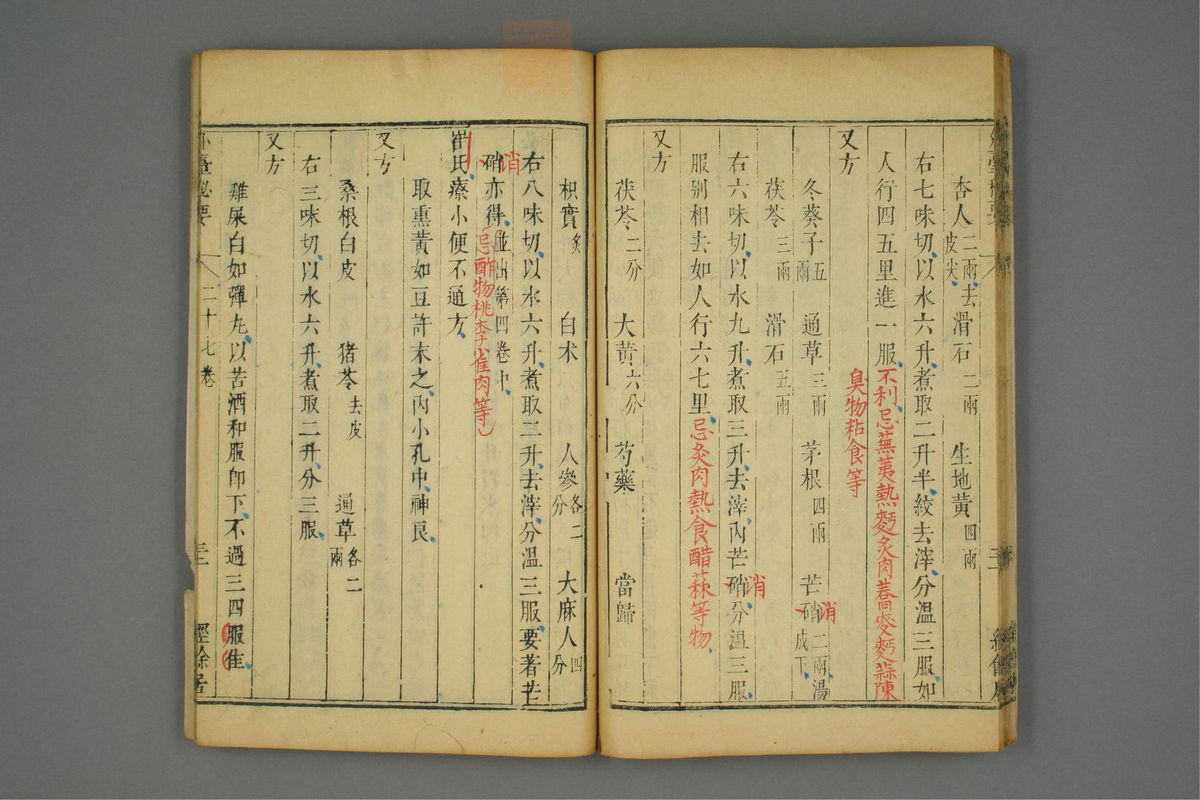 杏人二兩去皮尖 滑石二兩 生地黃四兩
右七味切以水六升煮取二升半絞去滓分溫三服如
人行四五里進一服不利忌蕪荑熱麪炙肉蕎麥麪蒜陳
臭物粘食等
又方
冬葵子五兩 通草三兩 茅根四兩 芒硝消二兩湯成下
茯苓三兩 滑石五兩
右六味切以水九升煮取三升去滓內芒硝消分溫三服
服別相去如人行六七里忌炙肉熱食醋蒜等物
又方
茯苓二分 大黃六分 芍藥 當歸
枳實炙 白朮 人參各二分 大麻人四分
右八味切以水六升煮取二升去滓分溫三服要著芒
硝消亦得並出第四卷中忌酢物桃李雀肉等
崔氏療小便不通方
取熏黃如豆許末之內小孔中神良
又方
桑根白皮 猪苓去皮 通草各二兩
右三味切以水六升煮取二升分三服
又方
雞屎白如彈丸以苦酒和服即下不過三四服佳
外臺秘要 二十七卷 三 經餘居